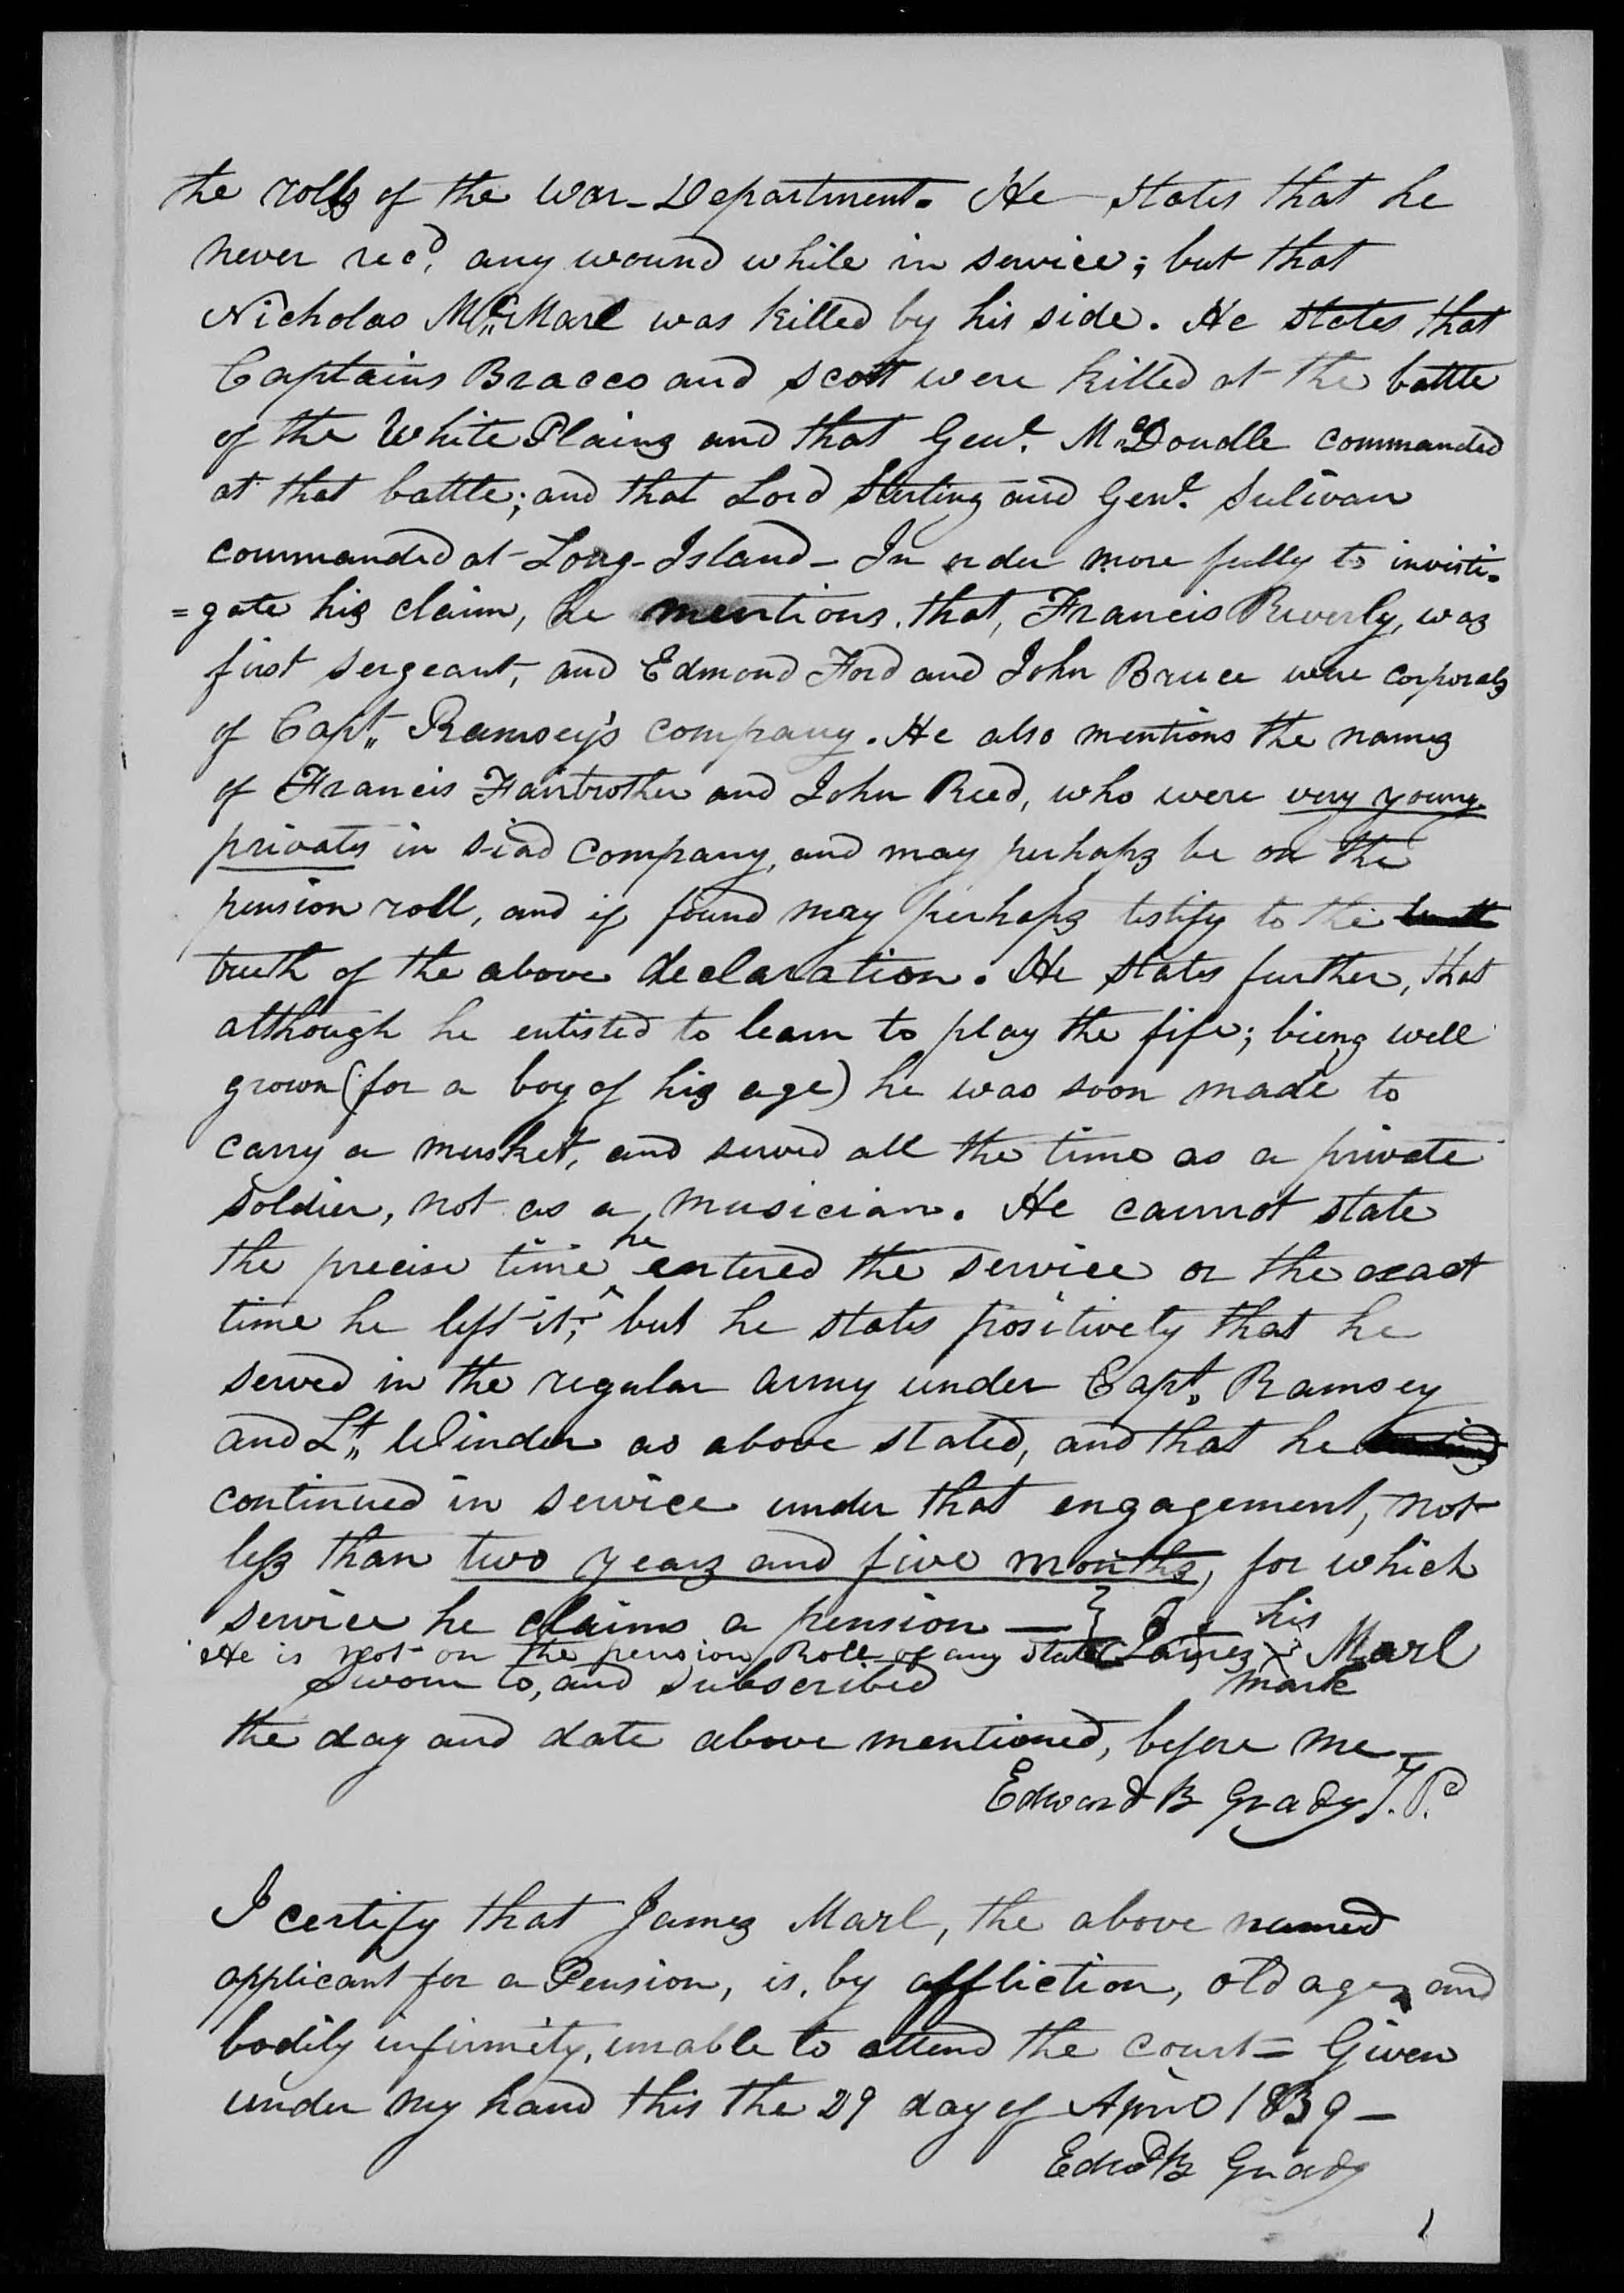 the rolls of the War-Department. He states that he
never rec.d any wound while in service; but that
Nicholas Mc.Marl was killed by his side. He states that
Captains Bracco and Scott were killed at the battle
of the White Plains and that Genl. McDoudle commanded
at that battle; and that Lord Sterling and Genl. Sulivan
commanded at Long-Island- In order more fully to investi-
=gate his claim, he mentions that, Francis Reverly, was
first sergeant, and Edmond Ford and John Bruce were corporals
of Capt,, Ramsey's company. He also mentions the names
of Francis Fairbrother and John Reed, who were very young
privates in siad company, and may perhaps be on the
pension roll, and if found may perhaps testify to the
truth of the above declaration. He states further, that
although he enlisted to learn to play the fife; bieng well
grown (for a boy of his age) he was soon made to
carry a musket, and served all the time as a private
soldier, not as a musician. He cannot state
the precise time he entered the service or the exact
time he left it; but he states positively that he
served in the regular army under Capt,, Ramsey
and Lt,, Winder as above stated, and that he
continued in service under that engagement, not
less than two years and five months, for which
service he claims a pension —
He is not on the pension Roll of any state
his
James X Marl
mark
Sworn to, and subscribed
the day and date above mentioned, before me —
Edward B Grady J.P.
I certify that James Marl, the above named
applicant for a Pension, is, by affliction, old age, and
bodily infirmity, unable to attend the court = Given
under my hand this the 29 day of April 1839 —
Edwd B Grady